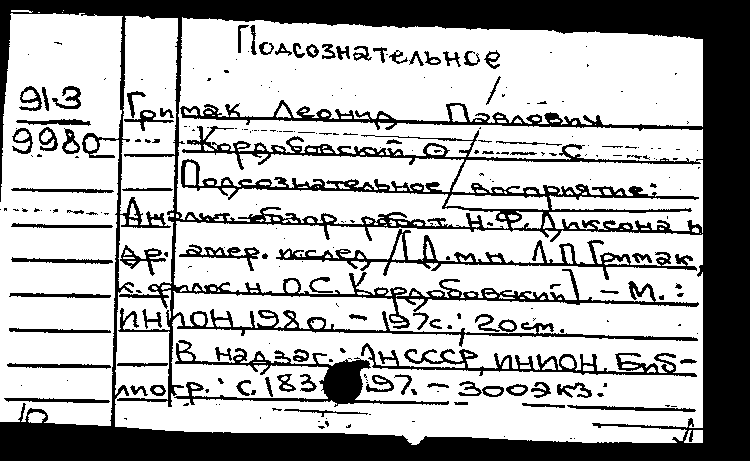 Подсознательное
91-3
9980
Гримак, Леонид Павлович
Кордобовский, О ------ С
Подсознательное восприятие:
Аналит. обзор работ Н.Ф. Диксона и
др. амер. исслед / [Д.м.н. Л.П. Гримак,
к. филос. н. О.С. Кордобовский]. - М.:
ИНИОН, 1980. - 197 с.; 20 cm.
В надзаг.: АН СССР, ИНИОН. Биб-
лиогр.: с. 183-197. - 300 экз.
10